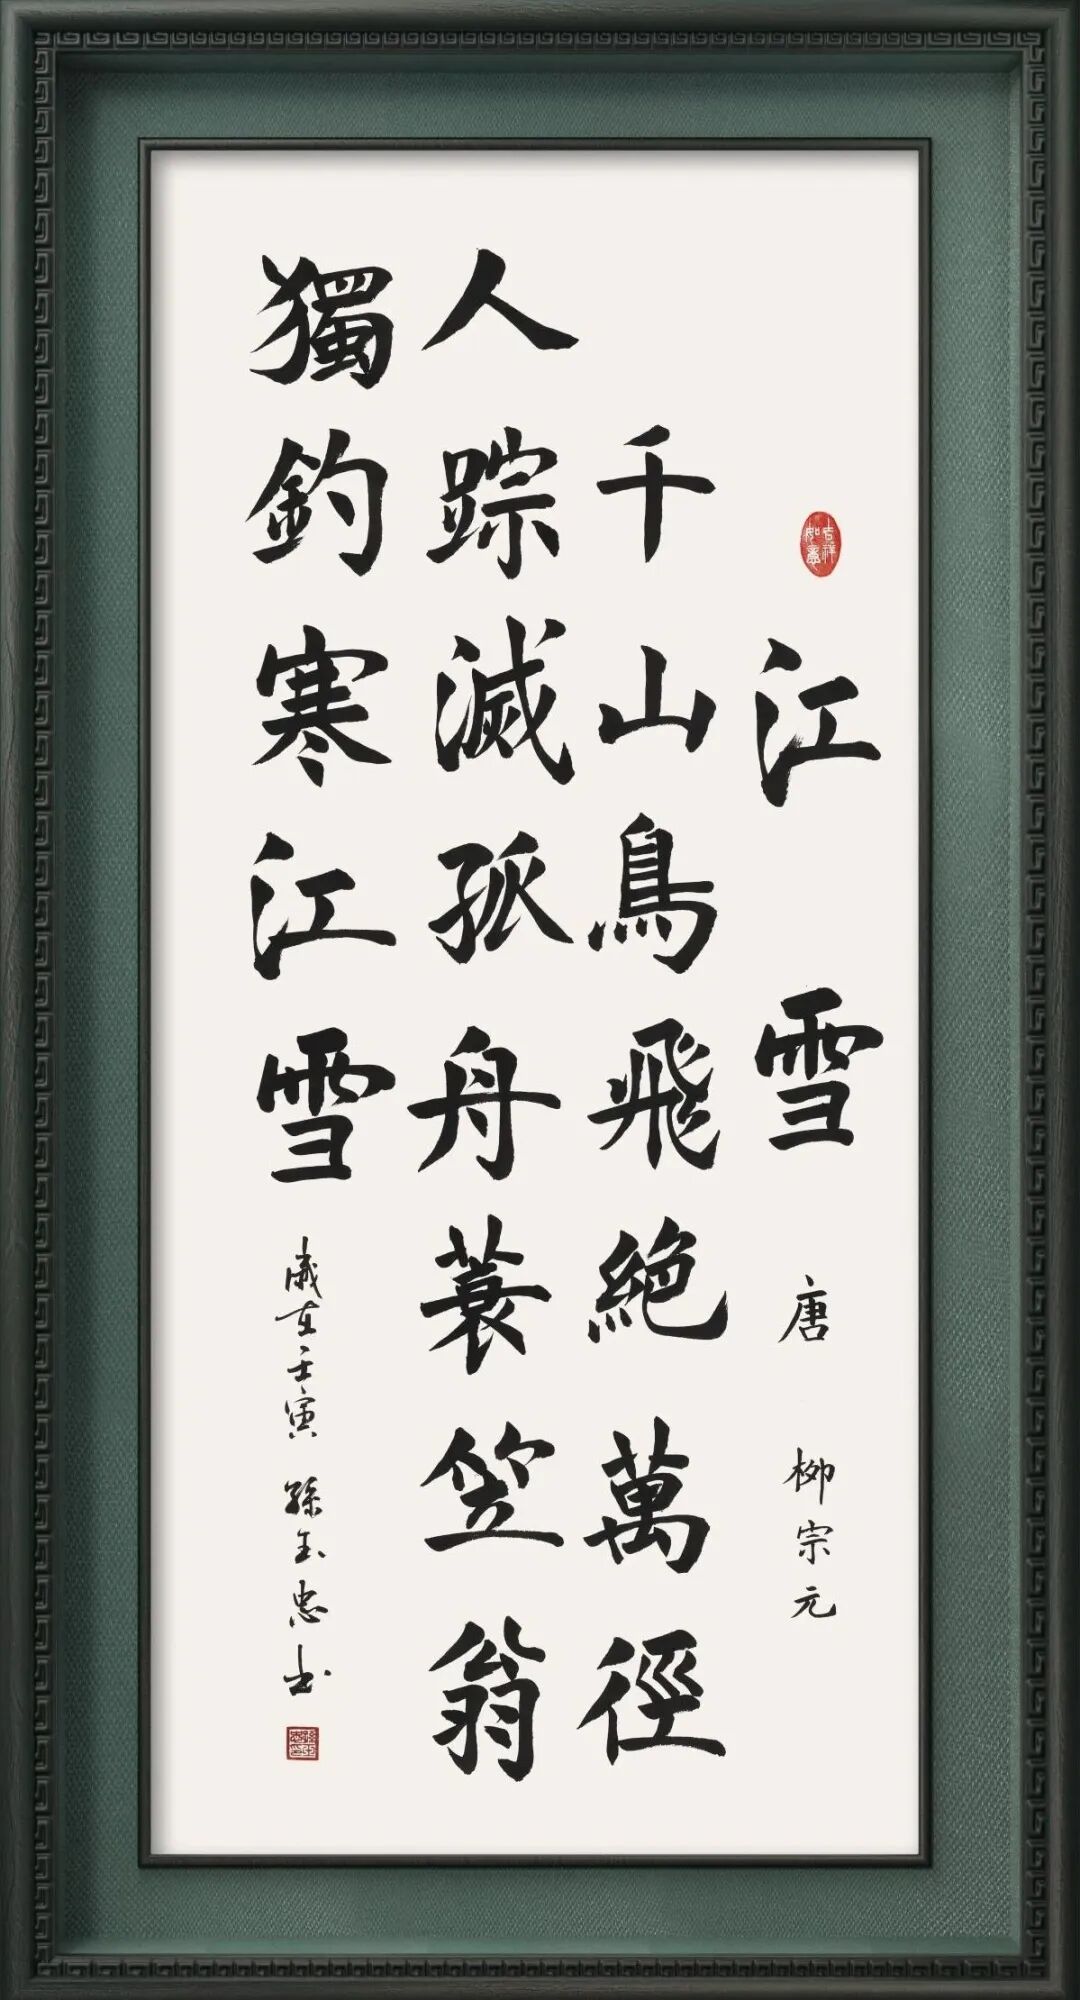 吉祥如意
江雪 唐 柳宗元
千山鳥飛絶萬徑
人踪滅孤舟蓑笠翁
獨釣寒江雪 歲在壬寅 孫玉忠书